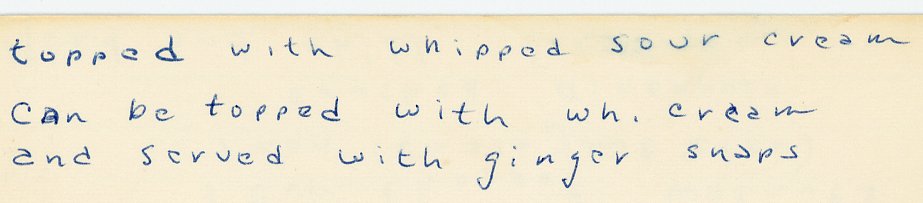 topped with whipped sour cream
Can be topped with wh. cream
and served with ginger snaps